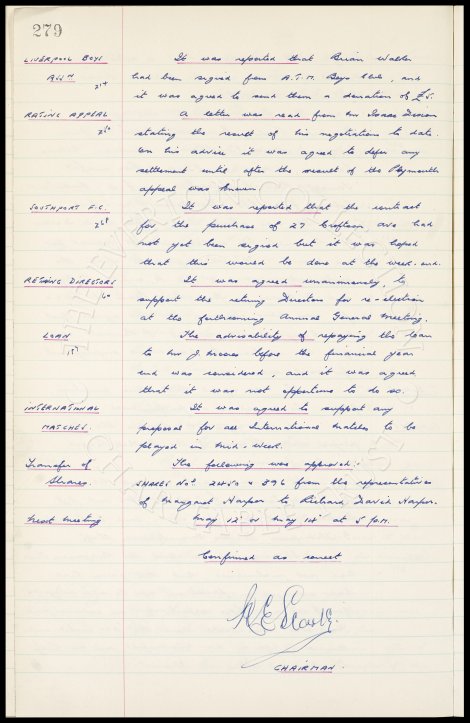 279
LIVERPOOL BOYS It was reported that Brian Walker
ASSN had been signed from A.T.M. Boys Club, and
it was agreed to send them a donation of £5.
RATING APPEAL A letter was read from Mr Isaac Dixon
stating the result of his negotiations to date.
On his advice it was agreed to defer any
settlement until after the result of the Plymouth
appeal was known.
SOUTHPORT F.C. It was reported that the contract
for the purchase of 27 Croftson Ave had
not yet been signed but it was hoped
that this would be done at the week-end.
RETIRING DIRECTORS It was agreed unanimously, to
support the retiring Directors for re-election
at the forthcoming Annual General Meeting.
LOAN The advisability of repaying the loan
to Mr J. Moores before the financial year
end was considered, and it was agreed
that it was not opportune to do so.
INTERNATIONAL It was agreed to support any
MATCHES. proposal for all International matches to be
played in mid-week.
Transfer of The following was approved:-
Shares. SHARES Nos. 2450 & 896 from the representatives
of Margaret Harper to Richard David Harper.
Next meeting May 12 or May 14 at 5 p.m.
Confirmed as correct
CHAIRMAN.